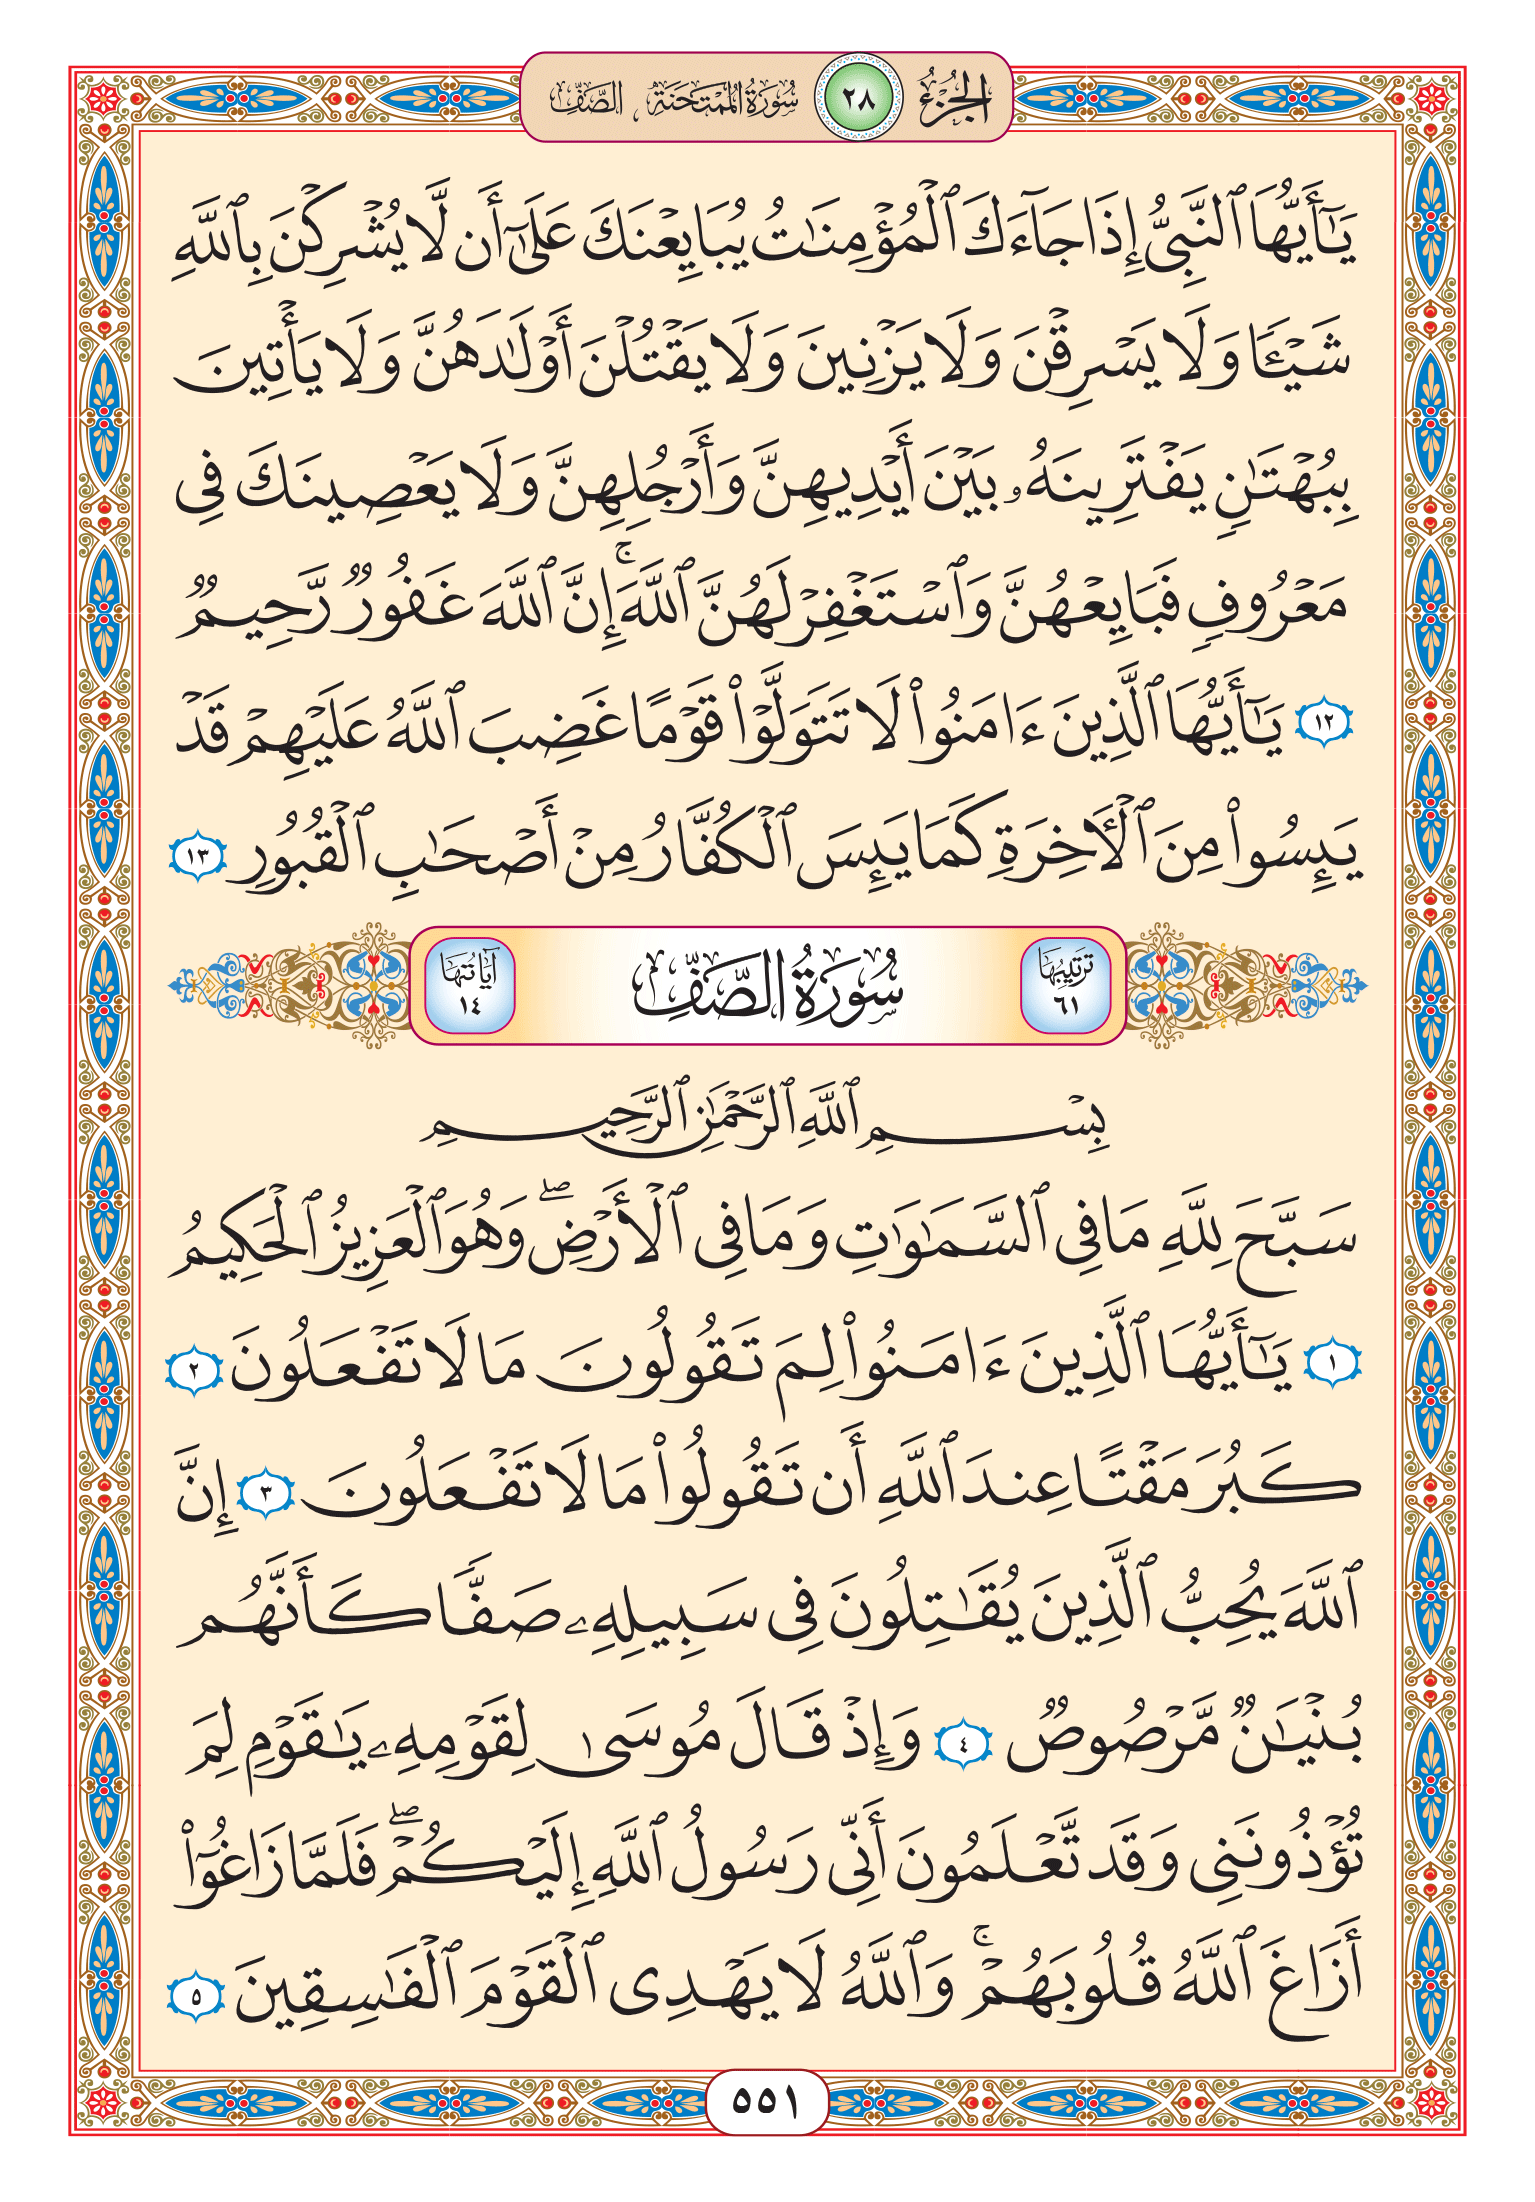 الجزء ٢٨ سورة الممتحنة، الصف
يَٰٓأَيُّهَا ٱلنَّبِيُّ إِذَا جَآءَكَ ٱلْمُؤْمِنَٰتُ يُبَايِعْنَكَ عَلَىٰٓ أَن لَّا يُشْرِكْنَ بِٱللَّهِ
شَيْـًٔا وَلَا يَسْرِقْنَ وَلَا يَزْنِينَ وَلَا يَقْتُلْنَ أَوْلَٰدَهُنَّ وَلَا يَأْتِينَ
بِبُهْتَٰنٍ يَفْتَرِينَهُۥ بَيْنَ أَيْدِيهِنَّ وَأَرْجُلِهِنَّ وَلَا يَعْصِينَكَ فِى
مَعْرُوفٍ فَبَايِعْهُنَّ وَٱسْتَغْفِرْ لَهُنَّ ٱللَّهَ ۚ إِنَّ ٱللَّهَ غَفُورٌ رَّحِيمٌ
١٢ يَٰٓأَيُّهَا ٱلَّذِينَ ءَامَنُوا۟ لَا تَتَوَلَّوْا۟ قَوْمًا غَضِبَ ٱللَّهُ عَلَيْهِمْ قَدْ
يَئِسُوا۟ مِنَ ٱلْـَٔاخِرَةِ كَمَا يَئِسَ ٱلْكُفَّارُ مِنْ أَصْحَٰبِ ٱلْقُبُورِ ١٣
ترتيبها ٦١ سُورَةُ الصَّفِّ آياتُها ١٤
بِسْمِ ٱللَّهِ ٱلرَّحْمَٰنِ ٱلرَّحِيمِ
سَبَّحَ لِلَّهِ مَا فِى ٱلسَّمَٰوَٰتِ وَمَا فِى ٱلْأَرْضِ ۖ وَهُوَ ٱلْعَزِيزُ ٱلْحَكِيمُ
١ يَٰٓأَيُّهَا ٱلَّذِينَ ءَامَنُوا۟ لِمَ تَقُولُونَ مَا لَا تَفْعَلُونَ ٢
كَبُرَ مَقْتًا عِندَ ٱللَّهِ أَن تَقُولُوا۟ مَا لَا تَفْعَلُونَ ٣ إِنَّ
ٱللَّهَ يُحِبُّ ٱلَّذِينَ يُقَٰتِلُونَ فِى سَبِيلِهِۦ صَفًّا كَأَنَّهُم
بُنْيَٰنٌ مَّرْصُوصٌ ٤ وَإِذْ قَالَ مُوسَىٰ لِقَوْمِهِۦ يَٰقَوْمِ لِمَ
تُؤْذُونَنِى وَقَد تَّعْلَمُونَ أَنِّى رَسُولُ ٱللَّهِ إِلَيْكُمْ ۖ فَلَمَّا زَاغُوٓا۟
أَزَاغَ ٱللَّهُ قُلُوبَهُمْ ۚ وَٱللَّهُ لَا يَهْدِى ٱلْقَوْمَ ٱلْفَٰسِقِينَ ٥
٥٥١